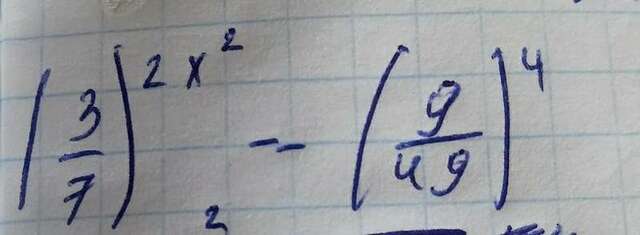 (3/7)^{2x^2} -- (9/49)^4
2